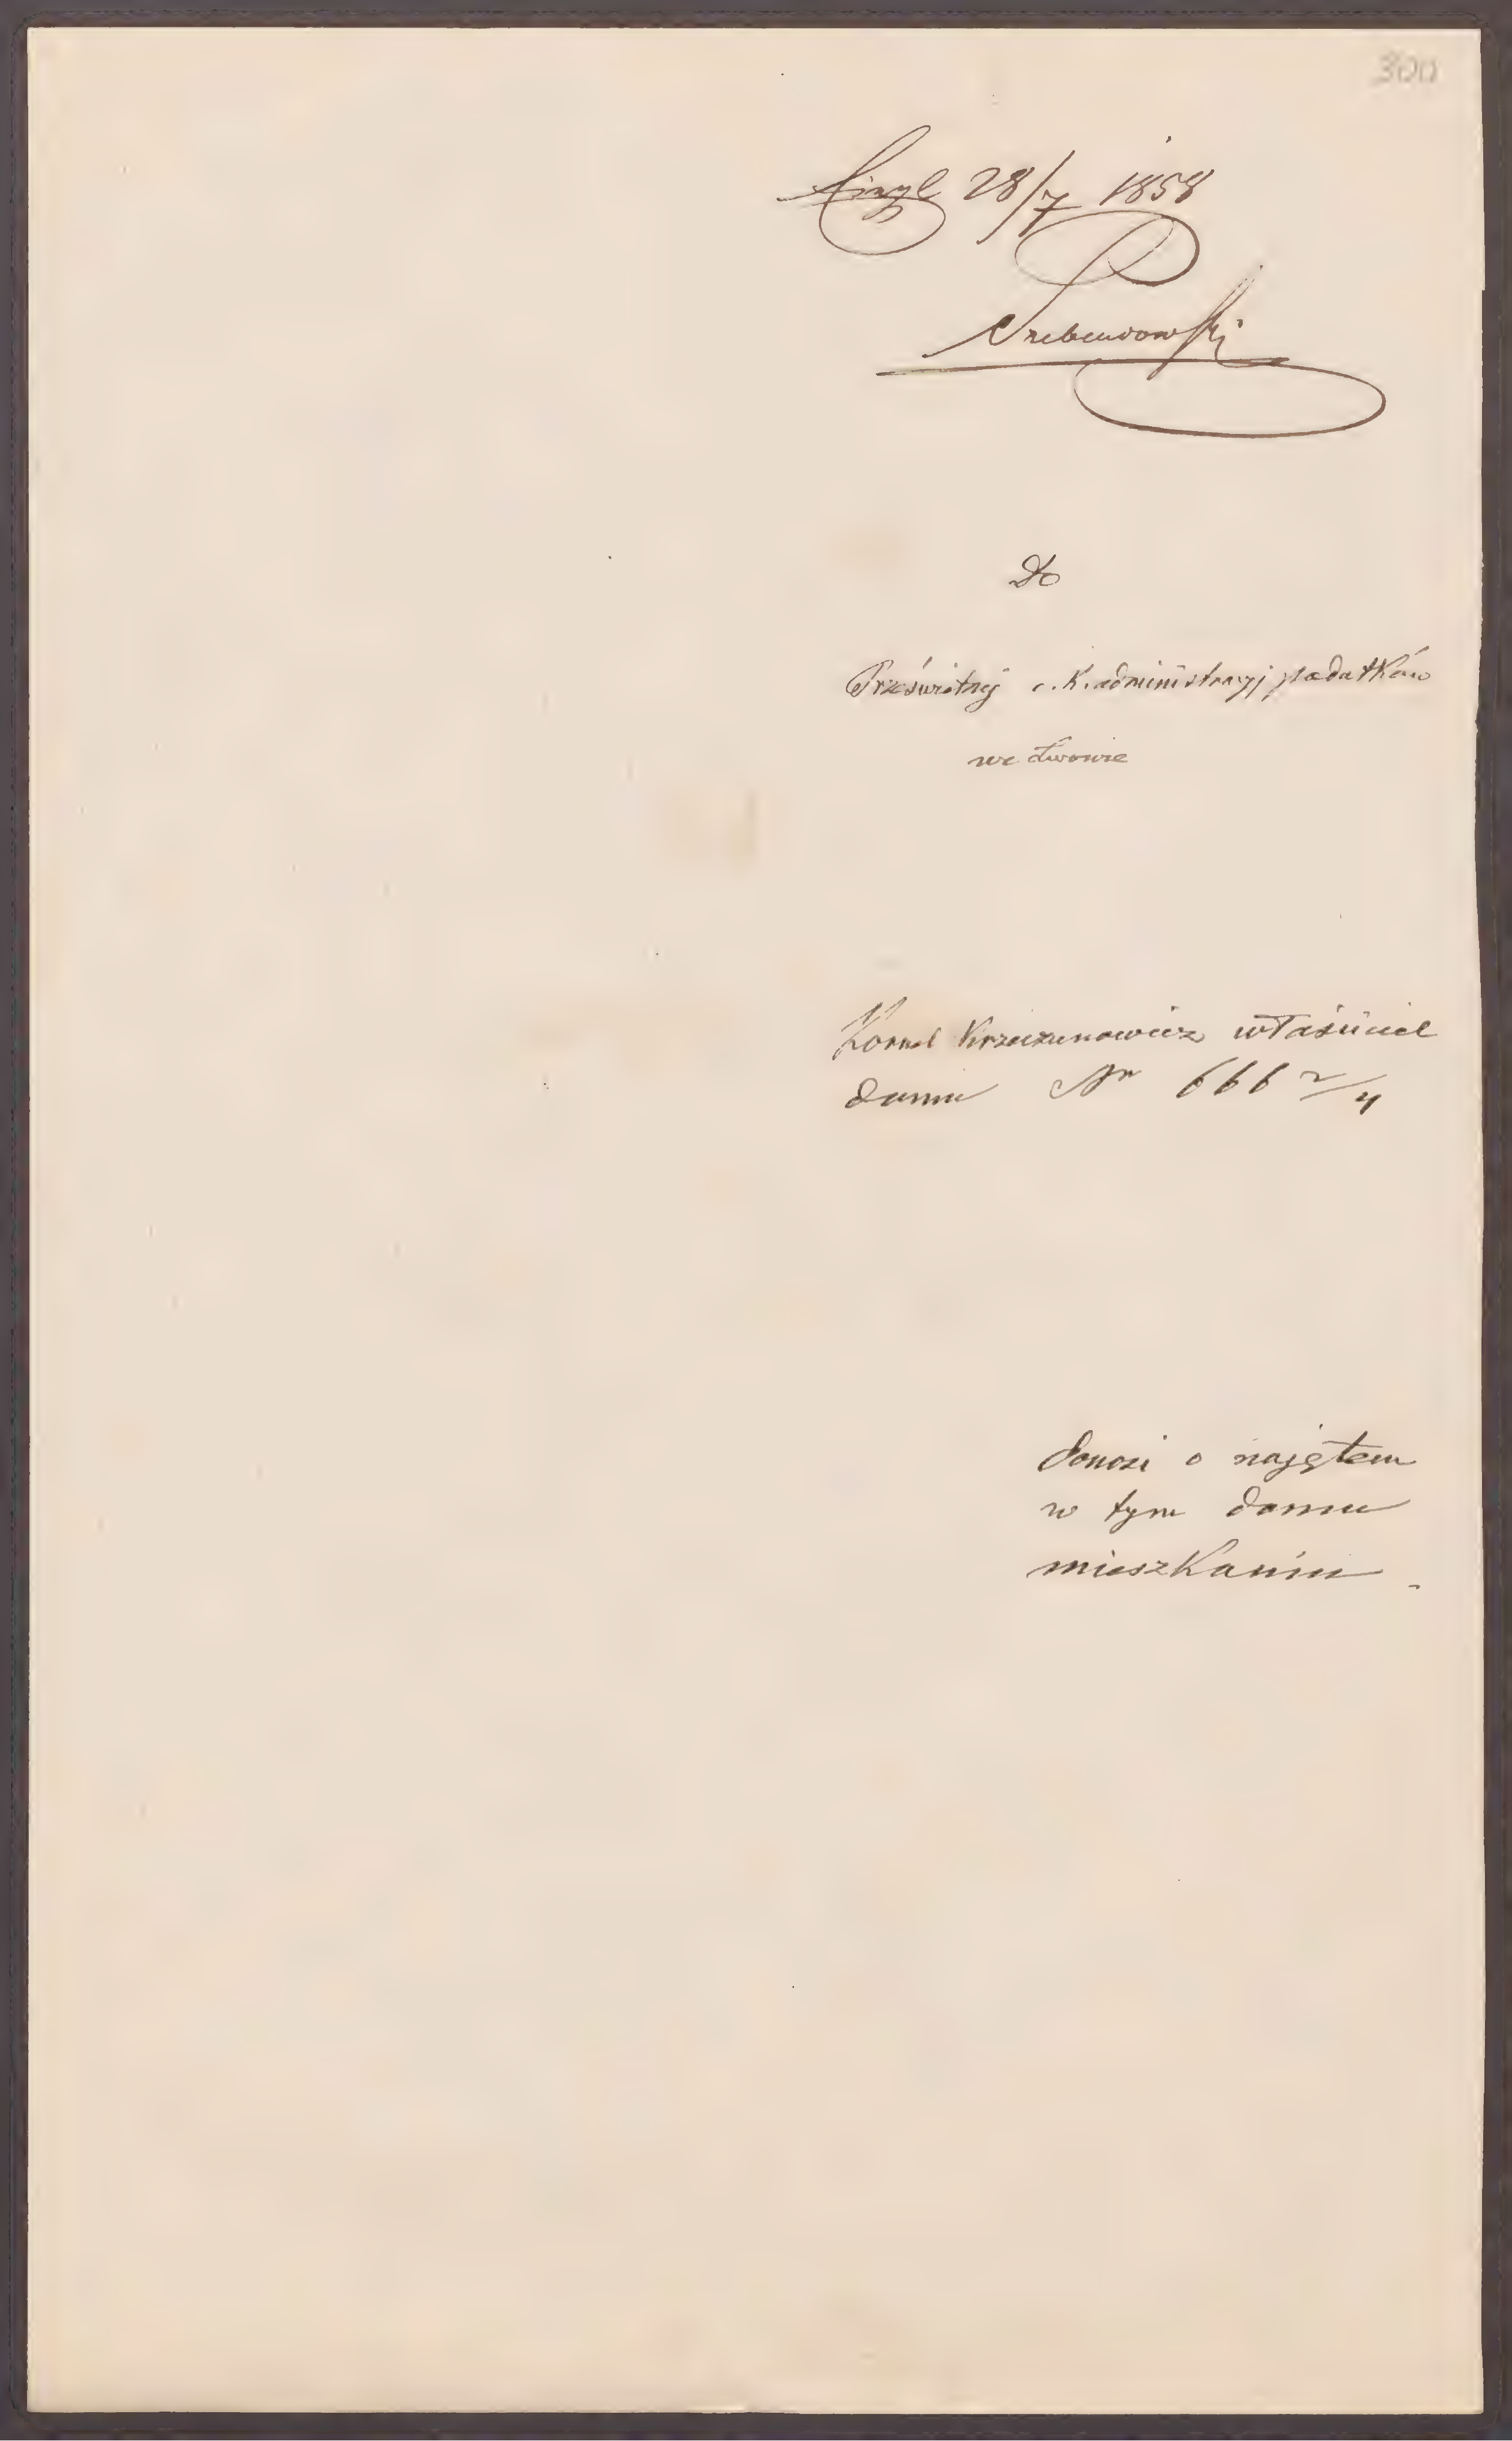 300
28/7 1858
Do
Prześwietnej c. K. administracyj podatków
we Lwowie
Kornel Krzeczunowicz właściciel
domu Nr 666 2/4
donosi o najętem
w tym domu
mieszkaniu.